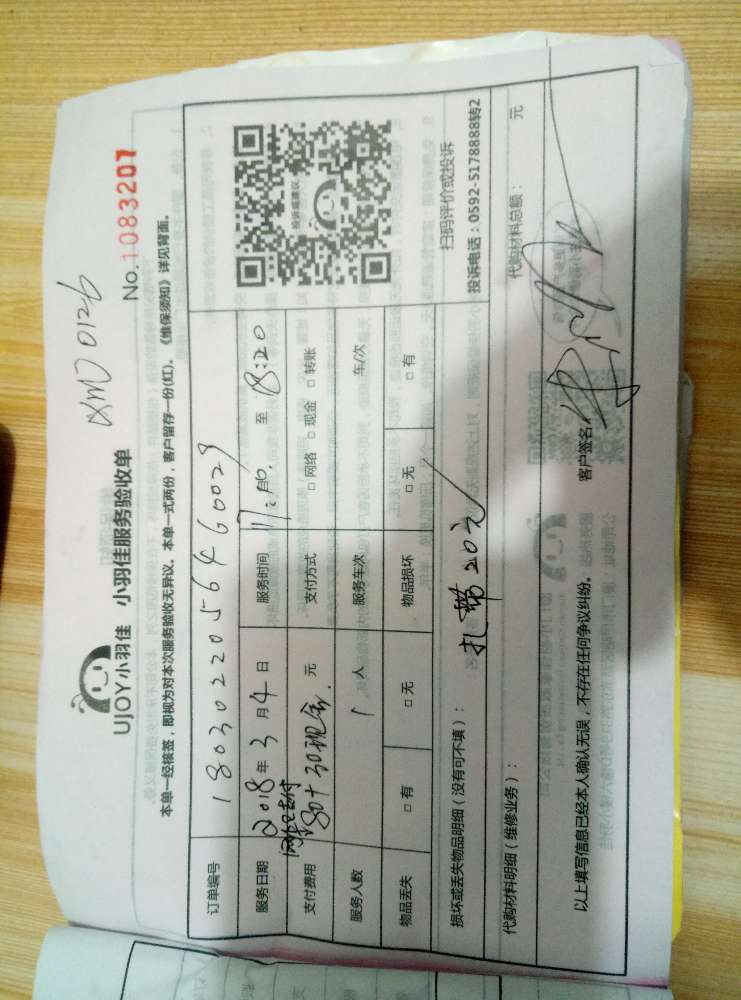 XM0126
UJOY小羽佳 小羽佳服务验收单
No.1083207
本单一经核签，即视为对本次服务验收无异议。本单一式两份，客户留存一份(红)。《维保须知》详见背面。
订单编号 1803022056460029
服务日期 2018年3月4日 服务时间 至 18:20
支付费用 网上支付 80+30现金 元 支付方式 □网络 □现金 □转账
服务人数 1 人 服务车次 车/次
物品丢失 □有 □无 物品损坏 □无 □有
投诉或建议
扫码评价或投诉
投诉电话：0592-5178888转2
损坏或丢失物品明细（没有可不填）：
扎带20元
代购材料明细（维修业务）： 代购材料总额： 元
以上填写信息已经本人确认无误，不存在任何争议纠纷。 客户签名：